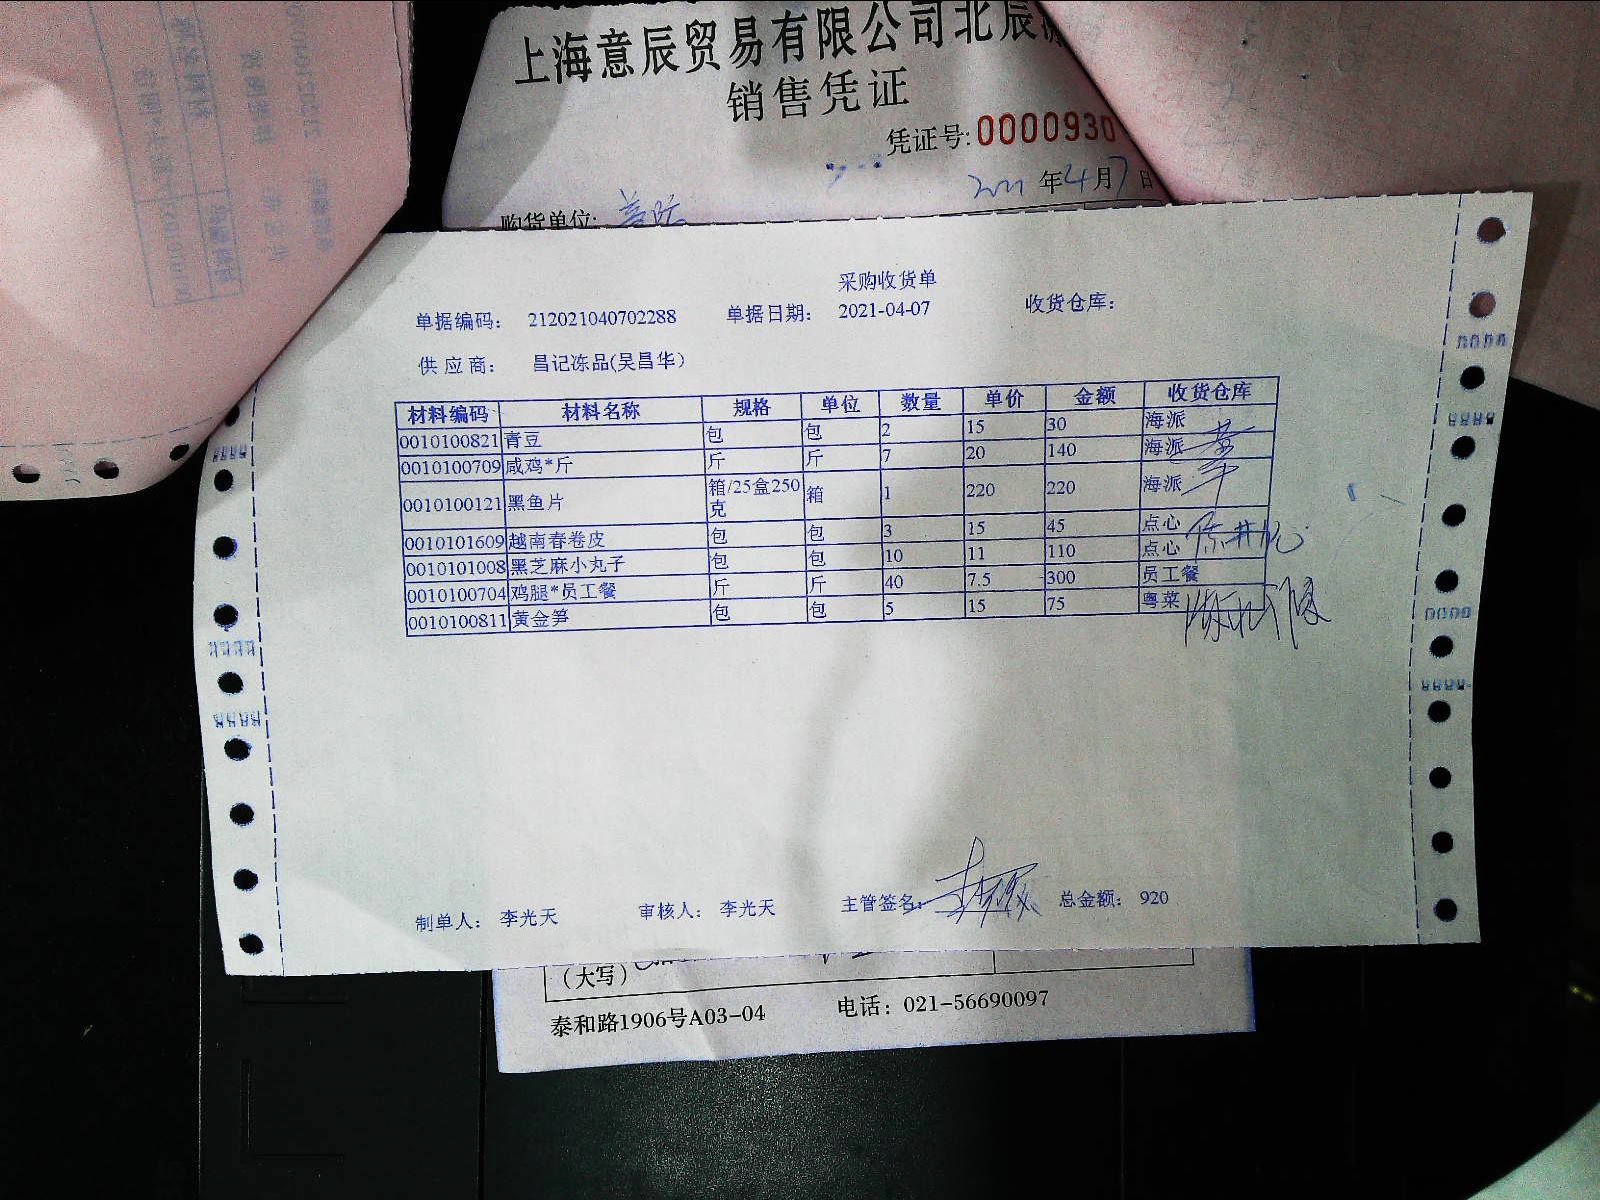 上海意辰贸易有限公司北辰
销售凭证
凭证号:0000930
2021年4月7日
购货单位:
采购收货单
单据编码： 212021040702288 单据日期： 2021-04-07 收货仓库：
供应商： 昌记冻品(吴昌华）
材料编码 材料名称 规格 单位 数量 单价 金额 收货仓库
0010100821 青豆 包 包 2 15 30 海派
0010100709 咸鸡*斤 斤 斤 7 20 140 海派
0010100121 黑鱼片 箱/25盒250克 箱 1 220 220 海派
0010101609 越南春卷皮 包 包 3 15 45 点心
0010101008 黑芝麻小丸子 包 包 10 11 110 点心
0010100704 鸡腿*员工餐 斤 斤 40 7.5 300 员工餐
0010100811 黄金笋 包 包 5 15 75 粤菜
制单人： 李光天 审核人： 李光天 主管签名： 总金额： 920
（大写）
泰和路1906号A03-04 电话：021-56690097